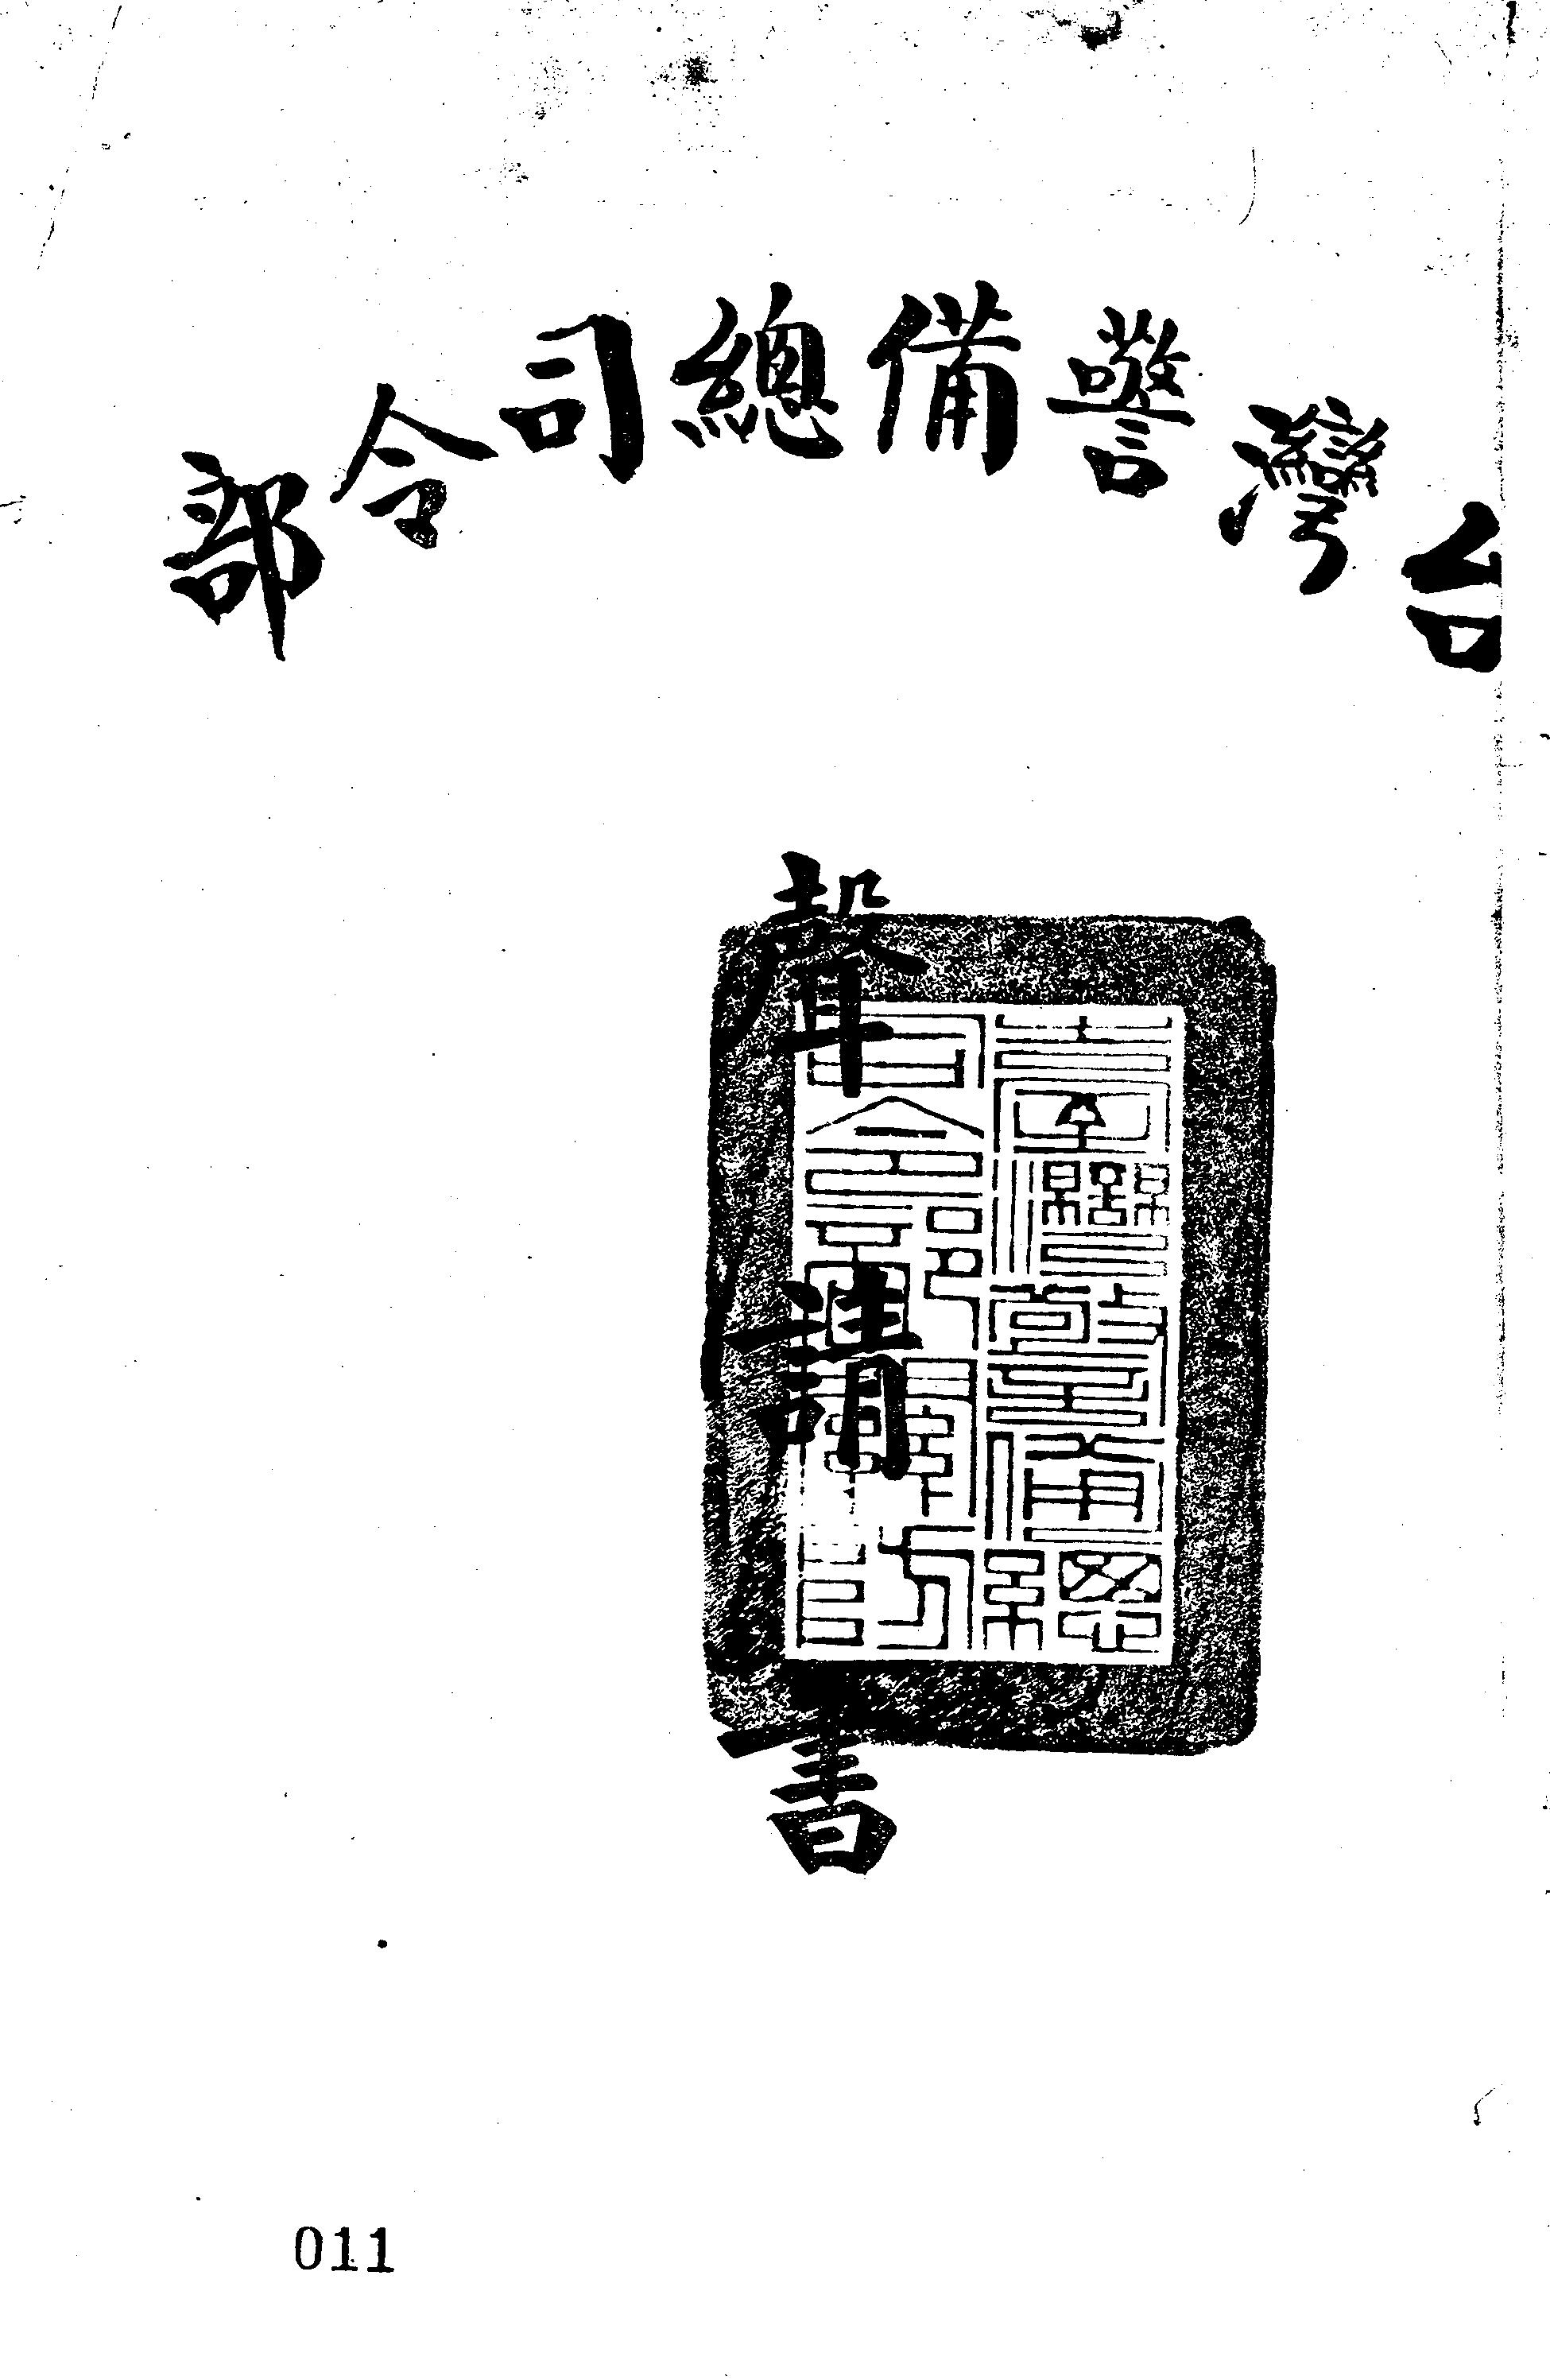 台灣警備總司令部
聲請書
臺灣警備總
司令部
011